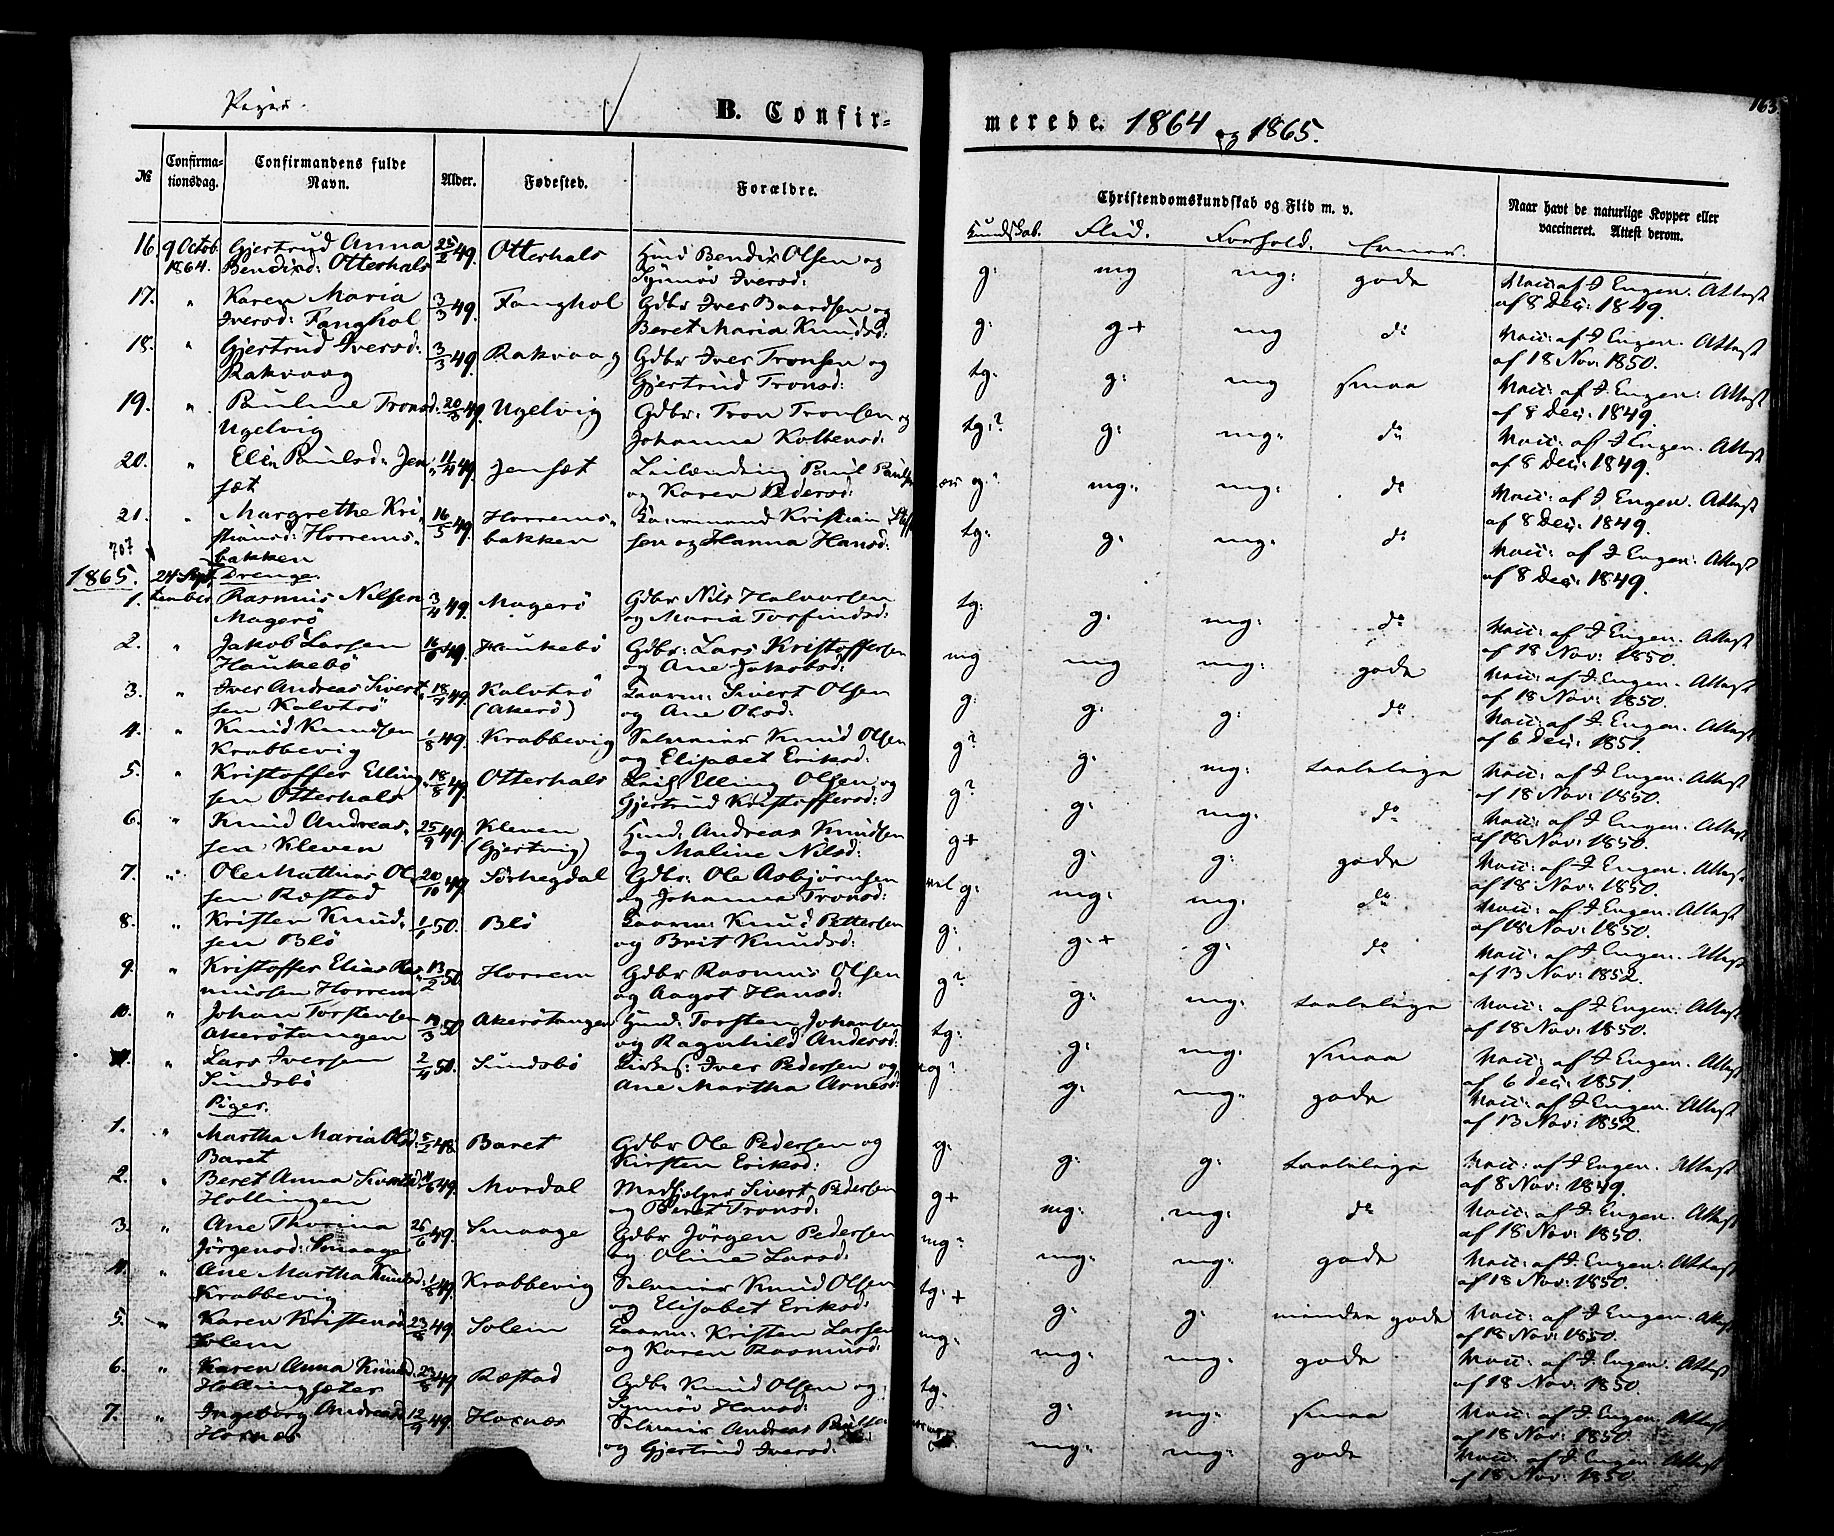 Piger.
B. Confirmerede. 1864 og 1865.
163
№ Confirmationsdag. Confirmandens fulde Navn. Alder. Fødested. Forældre. Christendomskundskab og Flid m. v. Naar havt de naturlige Kopper eller vaccineret. Attest derom.
Kundskab. Flid. Forhold. Evner.
16. 9 Octob. Gjertrud Anna 25/2 49. Otterhals Huusd Bendix Olsen og g: mg mg: gode Vacc: af J Engen. Attest
1864. Bendixd: Otterhals Synnøv Iversd: af 8 Dec: 1849.
17. " Karen Maria 3/3 49. Fanghol Gdbr Iver Baardsen og g: g+ mg do Vacc: af J Engen. Attest
Iversd: Fanghol Beret Maria Knudsd: af 18 Nov: 1850.
18. " Gjertrud Iversd: 3/3 49. Rakvaag Gdbr Iver Tronsen og tg: g: mg smaa Vacc: af J Engen: Attest
Rakvaag Gjertrud Tronsd: af 8 Dec: 1849.
19. " Pauline Tronsd: 20/3 49. Ugelvig Gdbr: Tron Tronsen og tg:? g: mg: do Vacc: af J Engen. Attest
Ugelvig Johanna Kolbensd: af 8 Dec: 1849.
20. " Elin Paulsd: Jen 11/4 49. Jensæt Leilænding Paul Paulsen g:? mg: mg: do Vacc: af J Engen. Attest
sæt og Karen Pedersd: af 8 Dec: 1849.
21. " Margrethe Kri 16/5 49. Horrems- Kristian tg: g: mg: do Vacc: af J Engen. Attest
stiansd: Horrems- bakken sen og Hanna Hansd: af 8 Dec: 1849.
707 bakken
1865. 24 Sept Drenge.
1. tember Rasmus Nilsen 3/4 49. Magerö Gdbr Nils Halvorsen tg: g: mg: do Vacc: af J Engen. Attest
Magerö og Maria Torfindsd: af 18 Nov: 1850.
2. " Jakob Larsen 16/6 49. Haukebö Gdbr: Lars Kristoffersen mg mg mg: gode Vacc: af J Engen. Attest
Haukebö og Ane Jakobsd: af 18 Nov: 1850.
3. " Iver Andreas Sivert 18/7 49. Kalvtrö Laarm: Sivert Olsen g: g: g: do Vacc: af J Engen: Attest
sen Kalvtrö (Akerö) og Ane Olsd: af 6 Dec: 1851.
4. " Knud Knudsen 1/8 49. Krabbevig Selveier Knud Olsen g? g: mg: taalelige Vacc: af J Engen: Attest
Krabbevig og Elisabet Eriksd: af 18 Nov: 1850.
5. " Kristoffer Elling 18/8 49. Otterhals Elling Olsen og g? g: mg: do Vacc: af J Engen: Attest
sen Otterhals Gjertrud Kristoffersd: af 18 Nov: 1850.
6. " Knud Andreas- 25/9 49. Kleven Huusd: Andreas Knudsen g+ g: g: gode Vacc: af J Engen: Attest
sen Kleven (Gjertvig) og Maline Nilsd: af 18 Nov: 1850.
7. " Ole Mathias Ol 20/10 49. Sörhegdal Gdbr: Ole Asbjörnsen vel g: mg: mg: do Vacc: af J Engen. Attest
sen Ræstad og Johanna Tronsd: af 18 Nov: 1850.
8. " Kristen Knud- 1/1 50. Blö Laarm: Knud Pettersen g: g:+ g: do Vacc: af J Engen. Attest
sen Blö og Brit Knudsd: af 13 Nov: 1852.
9. " Kristoffer Elias Ras 13/2 50. Horrem Gdbr Rasmus Olsen g? g: mg: taalelige Vacc: af J Engen: Attest
mussen Horrem og Aagot Hansd: af 18 Nov: 1850.
10. " Johan Torstensen 19/3 50. Akerötangen Huusd: Torsten Johansen tg: g: mg: smaa Vacc: af J Engen: Attest
Akerötangen og Ragnhild Andersd: af 6 Dec: 1851.
11. " Lars Iversen 2/4 50. Sundsbö Iver Pedersen og mg? g: mg: gode Vacc: af J Engen. Attest
Sundsbö Ane Martha Arnesd: af 13 Nov: 1852.
Piger.
1. " Martha Maria Olsd 5/2 48. Baret Gdbr Ole Pedersen og g: g: g: taalelige Vacc: af J Engen. Attest
Baret Kirsten Eriksd: af 8 Nov: 1849.
2. " Beret Anna Sivertsd 49. Mordal Medhjelper Sivert Pedersen g+ mg: mg: do Vacc: af J Engen. Attest
Hollingen og Beret Tronsd: af 18 Nov: 1850.
3. " Ane Thorina 26/6 49. Smaage Gdbr Jörgen Pedersen mg? mg: mg: gode Vacc: af J Engen: Attest
Jörgensd: Smaage og Oline Larsd: af 18 Nov: 1850.
4. " Ane Martha Knudsd: 1/8 49. Krabbevig Selveier Knud Olsen tg:+ g: g: mindre gode Vacc: af J Engen. Attest
Krabbevig og Elisabet Eriksd: af 18 Nov: 1850.
5. " Karen Kristensd 23/8 49. Solem Laarm: Kristen Larsen mg: mg: mg: gode Vacc: af J Engen. Attest
Solem og Karen Rasmusd: af 18 Nov: 1850.
6. " Karen Anna Knudsd. 29/8 49 Ræstad Gdbr Knud Olsen og tg: g: mg: smaa Vacc: af J Engen. Attest
Hollingsæter Synnöv Hansd: af 18 Nov: 1850.
7. " Ingeborg Andreasd 12/9 49. Hornes Selveier Andreas Paulsen mg: mg: gode Vacc: af J Engen. Attest
Hornes og Gjertrud Iversd: af 18 Nov: 1850.